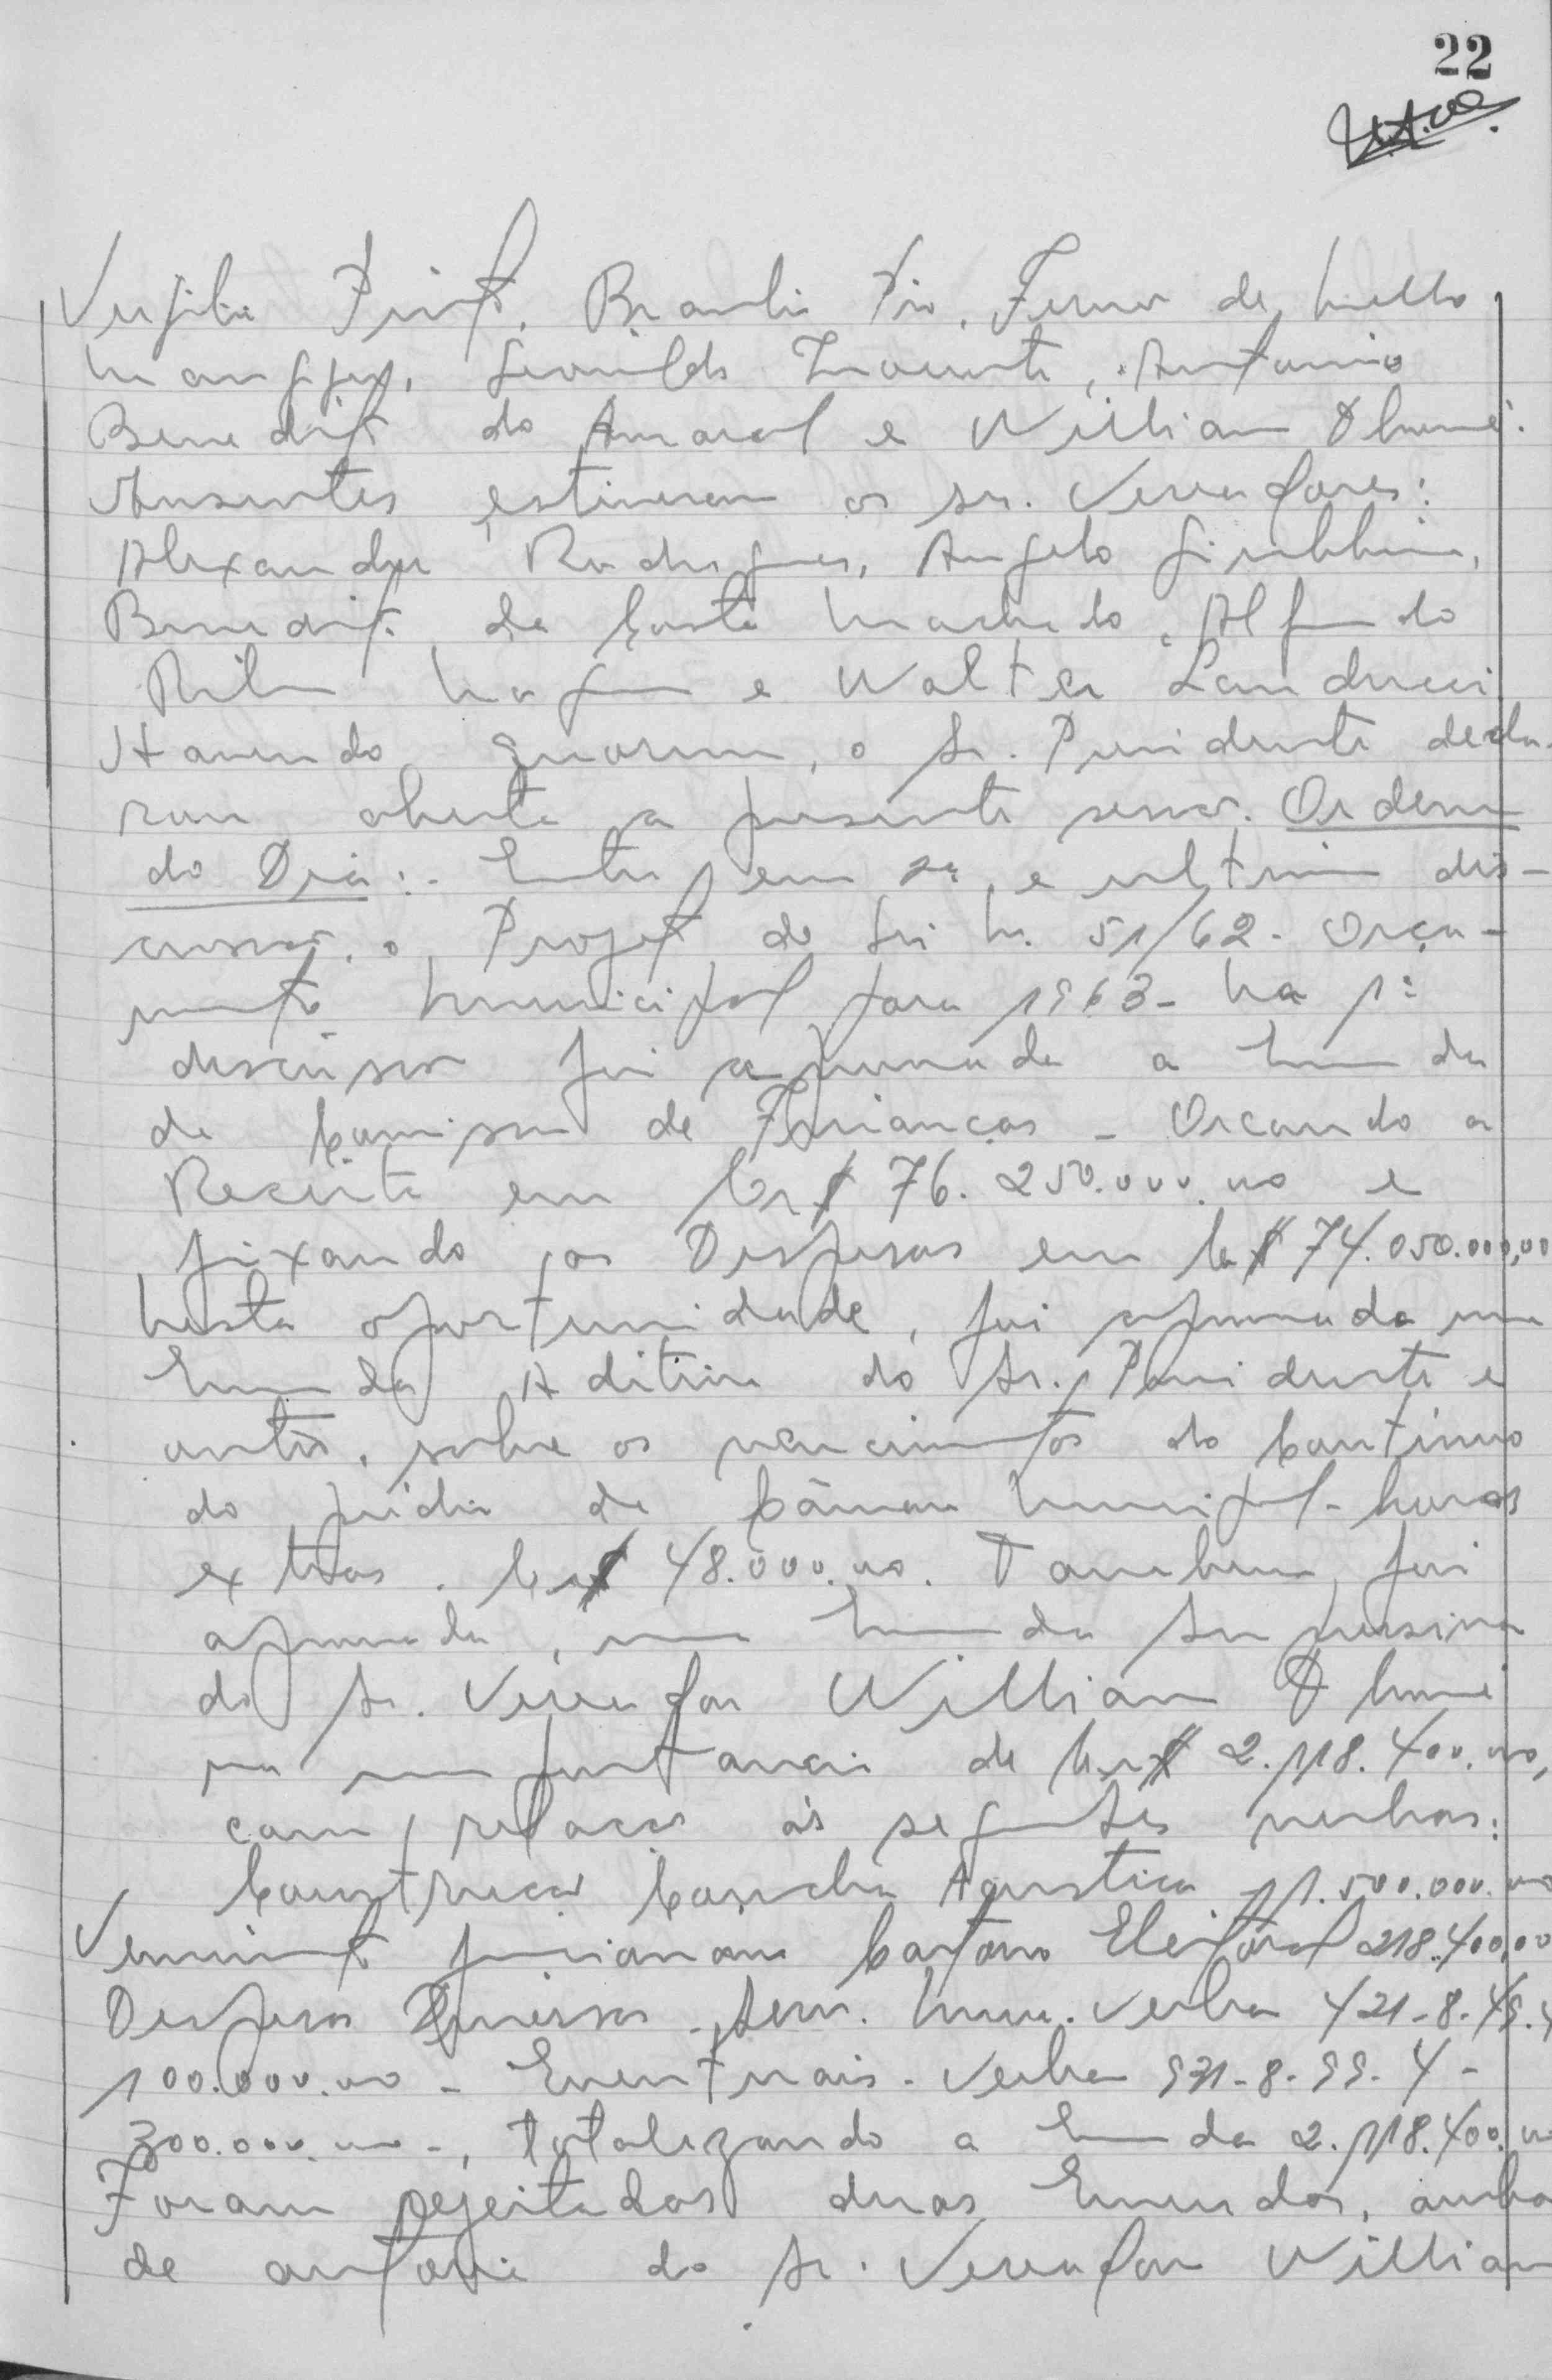 22
Vergilio Pinto, Braulio Pio, Fernor de Mello
Leonildo, Antonio
Benedito do Amaral e William Dhumé.
Ausentes estiveram os srs. Vereadores:
Alexandre Rodrigues, Angelo
Benedito da Costa Machado, Alfredo
e Walter Landucci
Havendo quorum, o Sr. Presidente decla-
rou aberta a presente sessão. Ordem
do Dia:- Entra em 2ª e ultima dis-
cussão, o Projeto de Lei n. 51/62 - Orça-
mento Municipal para 1963 - Na 1ª
discussão foi aprovada a Emenda
da Comissão de Finanças - Orcando a
Receita em Cr$ 76.250.000,00 e
fixando as Despesas em Cr$ 74.050.000,00
Nesta oportunidade, foi aprovada uma
Emenda Aditiva do Sr. Presidente e
outros, sobre os vencimentos do Continuo
do prédio da Câmara Municipal - horas
extras. Cr$ 48.000,00. Tambem foi
aprovada, uma Emenda Supressiva
do Sr. Vereador William Dhumé
na importancia de Cr$ 2.118.400,00,
com relacao às seguintes verbas:
Construcao Concha Acustica 1.500.000,00
Vencimento funcionario Cartorio Eleitoral 218.400,00
Despesas Diversas - Serv. Mun. Verba 421-8-49.4
100.000,00 - Eventuais - Verba 931-8-99-4 -
300.000,00 -, totalizando a Emenda 2.118.400,00
Foram rejeitadas duas Emendas, ambas
de autoria do Sr. Vereador William